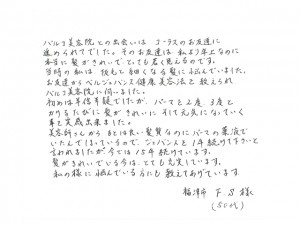 パルコ美容院との出会いは コーラスのお友達に
進められてでした。そのお友達は 私より年上なのに
本当に髪がきれいで、とっても若く見えるのです。
当時の私は 根元と細くなる髪に悩んでいました。
お友達からベルジュバンス健康美容法と教えられ
パルコ美容院に伺いました。
初めは半信半疑でしたが、パーマと2度、3度と
かけるたびに髪がきれいに そして元気になっていく
事を実感出来ました。
美容師さんから もとは良い髪質なのにパーマの薬液で
いたんでいます。ていうので、ジュバンスと1年続けて下さいと
言われましたが今では15年続けています。
髪がきれいでいる今は、とても充実しています。
私の様に悩んでいる方にも教えてあげています。
稲沢市 F.S様
(50代)